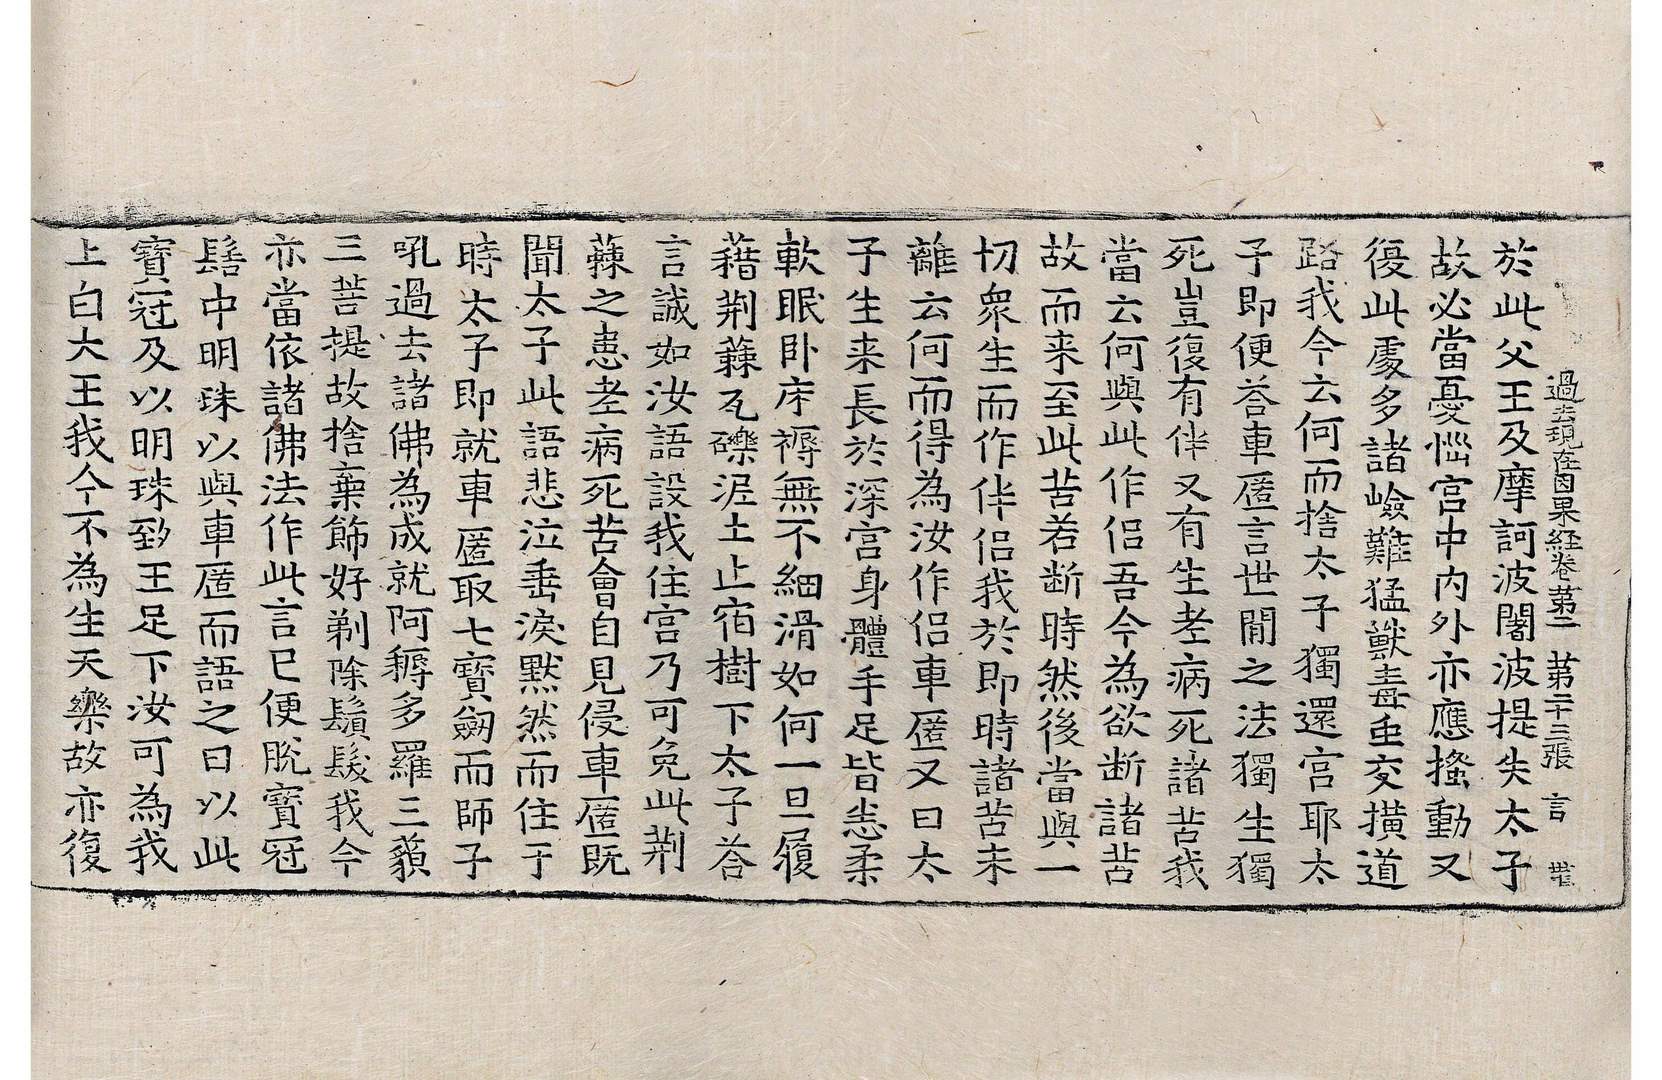 過去現在因果経卷第二 第二十三張 言
於此父王及摩訶波闍波提失太子
故必當憂惱宮中內外亦應搔動又
復此處多諸嶮難猛獸毒虫交撗道
路我今云何而捨太子獨還宮耶太
子即便荅車匿言世閒之法獨生獨
死豈復有伴又有生老病死諸苦我
當云何與此作侶吾今為欲断諸苦
故而来至此苦若断時然後當與一
切衆生而作伴侶我於即時諸苦未
離云何而得為汝作侶車匿又曰太
子生来長於深宮身體手足皆悉柔
軟眠卧床褥無不細滑如何一旦履
藉荆蕀瓦礫泥土止宿樹下太子荅
言誠如汝語設我住宮乃可免此荆
蕀之患老病死苦會自見侵車匿既
聞太子此語悲泣垂淚默然而住于
時太子即就車匿取七寶劒而師子
吼過去諸佛為成就阿耨多羅三藐
三菩提故捨棄飾好剃除鬚髮我今
亦當依諸佛法作此言已便脫寶冠
髻中明珠以與車匿而語之曰以此
寶冠及以明珠致王足下汝可為我
上白大王我今不為生天樂故亦復